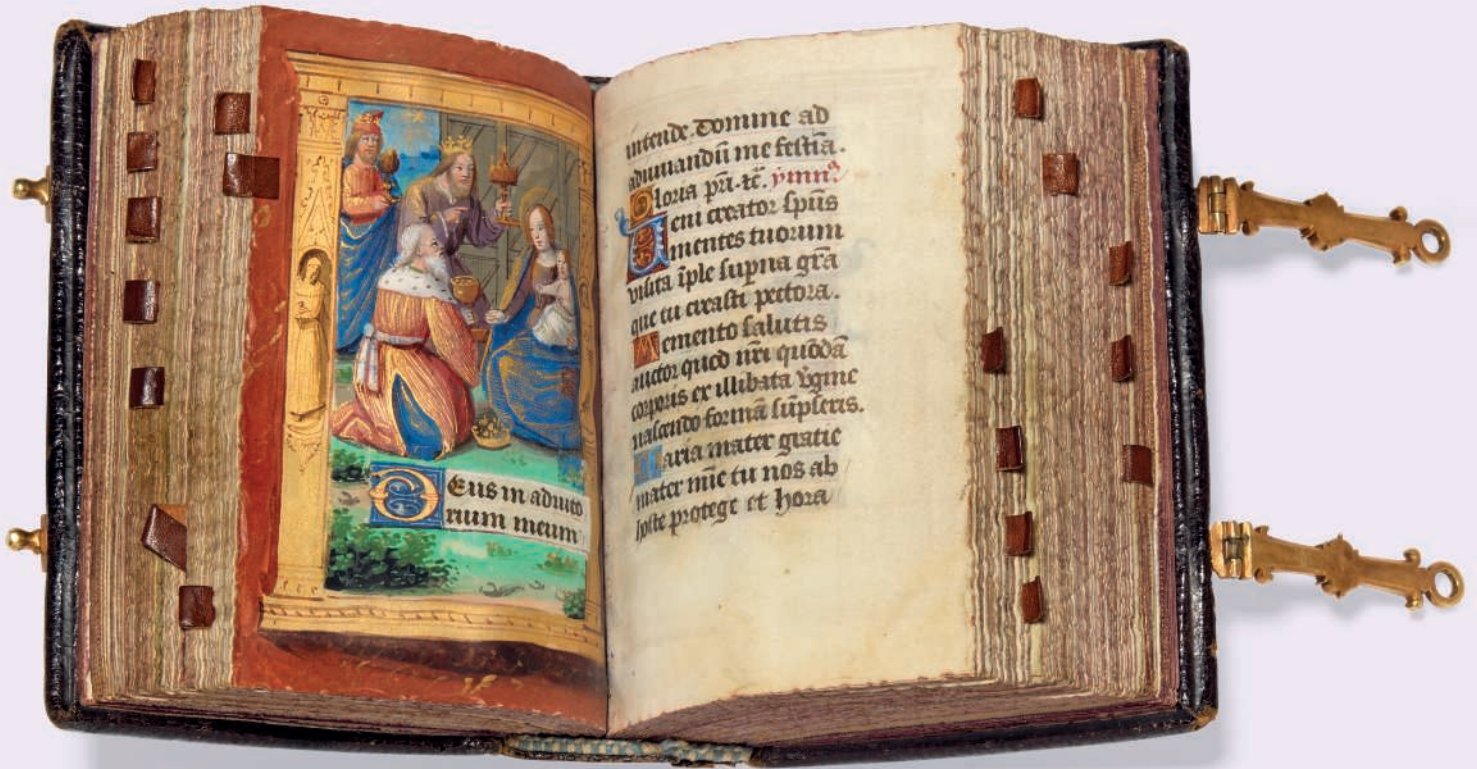 Deus in adiuto
rium meum
intende. Domine ad
adiuuandū me festīa.
Gloria pr̄i. ⁊c̄. ymnꝰ
Veni creator spūs
mentes tuorum
visita īple supna gr̄a
que tu creasti pectora.
Memento salutis
auctor quod nr̄i quōdā
corporis ex illibata v̄gine
nascendo formā sūpseris.
Maria mater gratie
mater mīe tu nos ab
hoste protege et hora